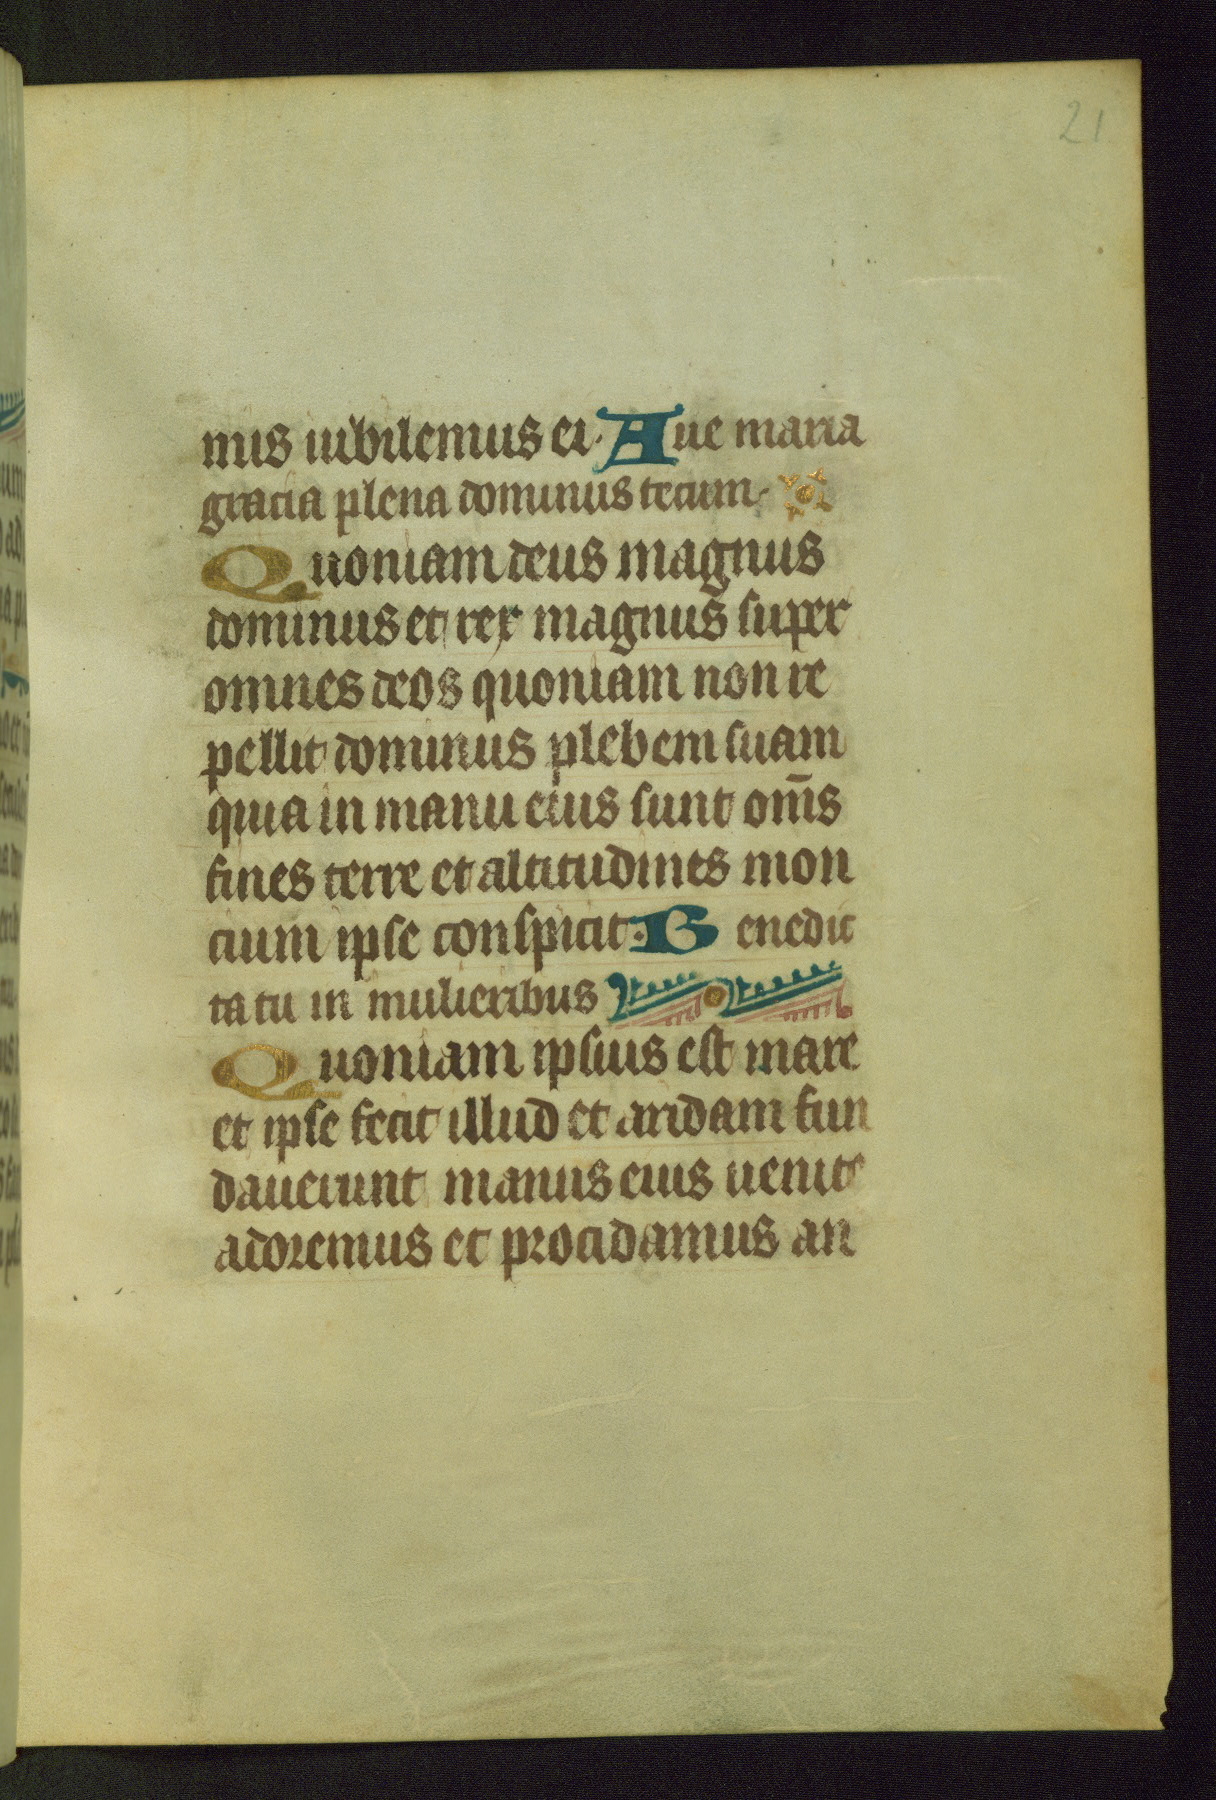 21
mus iubilemus ei. Aue maria
gracia plena dominus tecum.
Quoniam deus magnus
dominus et rex magnus super
omnes deos quoniam non re
pellit dominus plebem suam
quia in manu eius sunt om̄s
fines terre et altitudines mon
cium ipse conspicit. Benedic
ta tu in mulieribus
Quoniam ipsius est mare
et ipse fecit illud et aridam fun
dauerunt manus eius uenite
adoremus et procidamus an